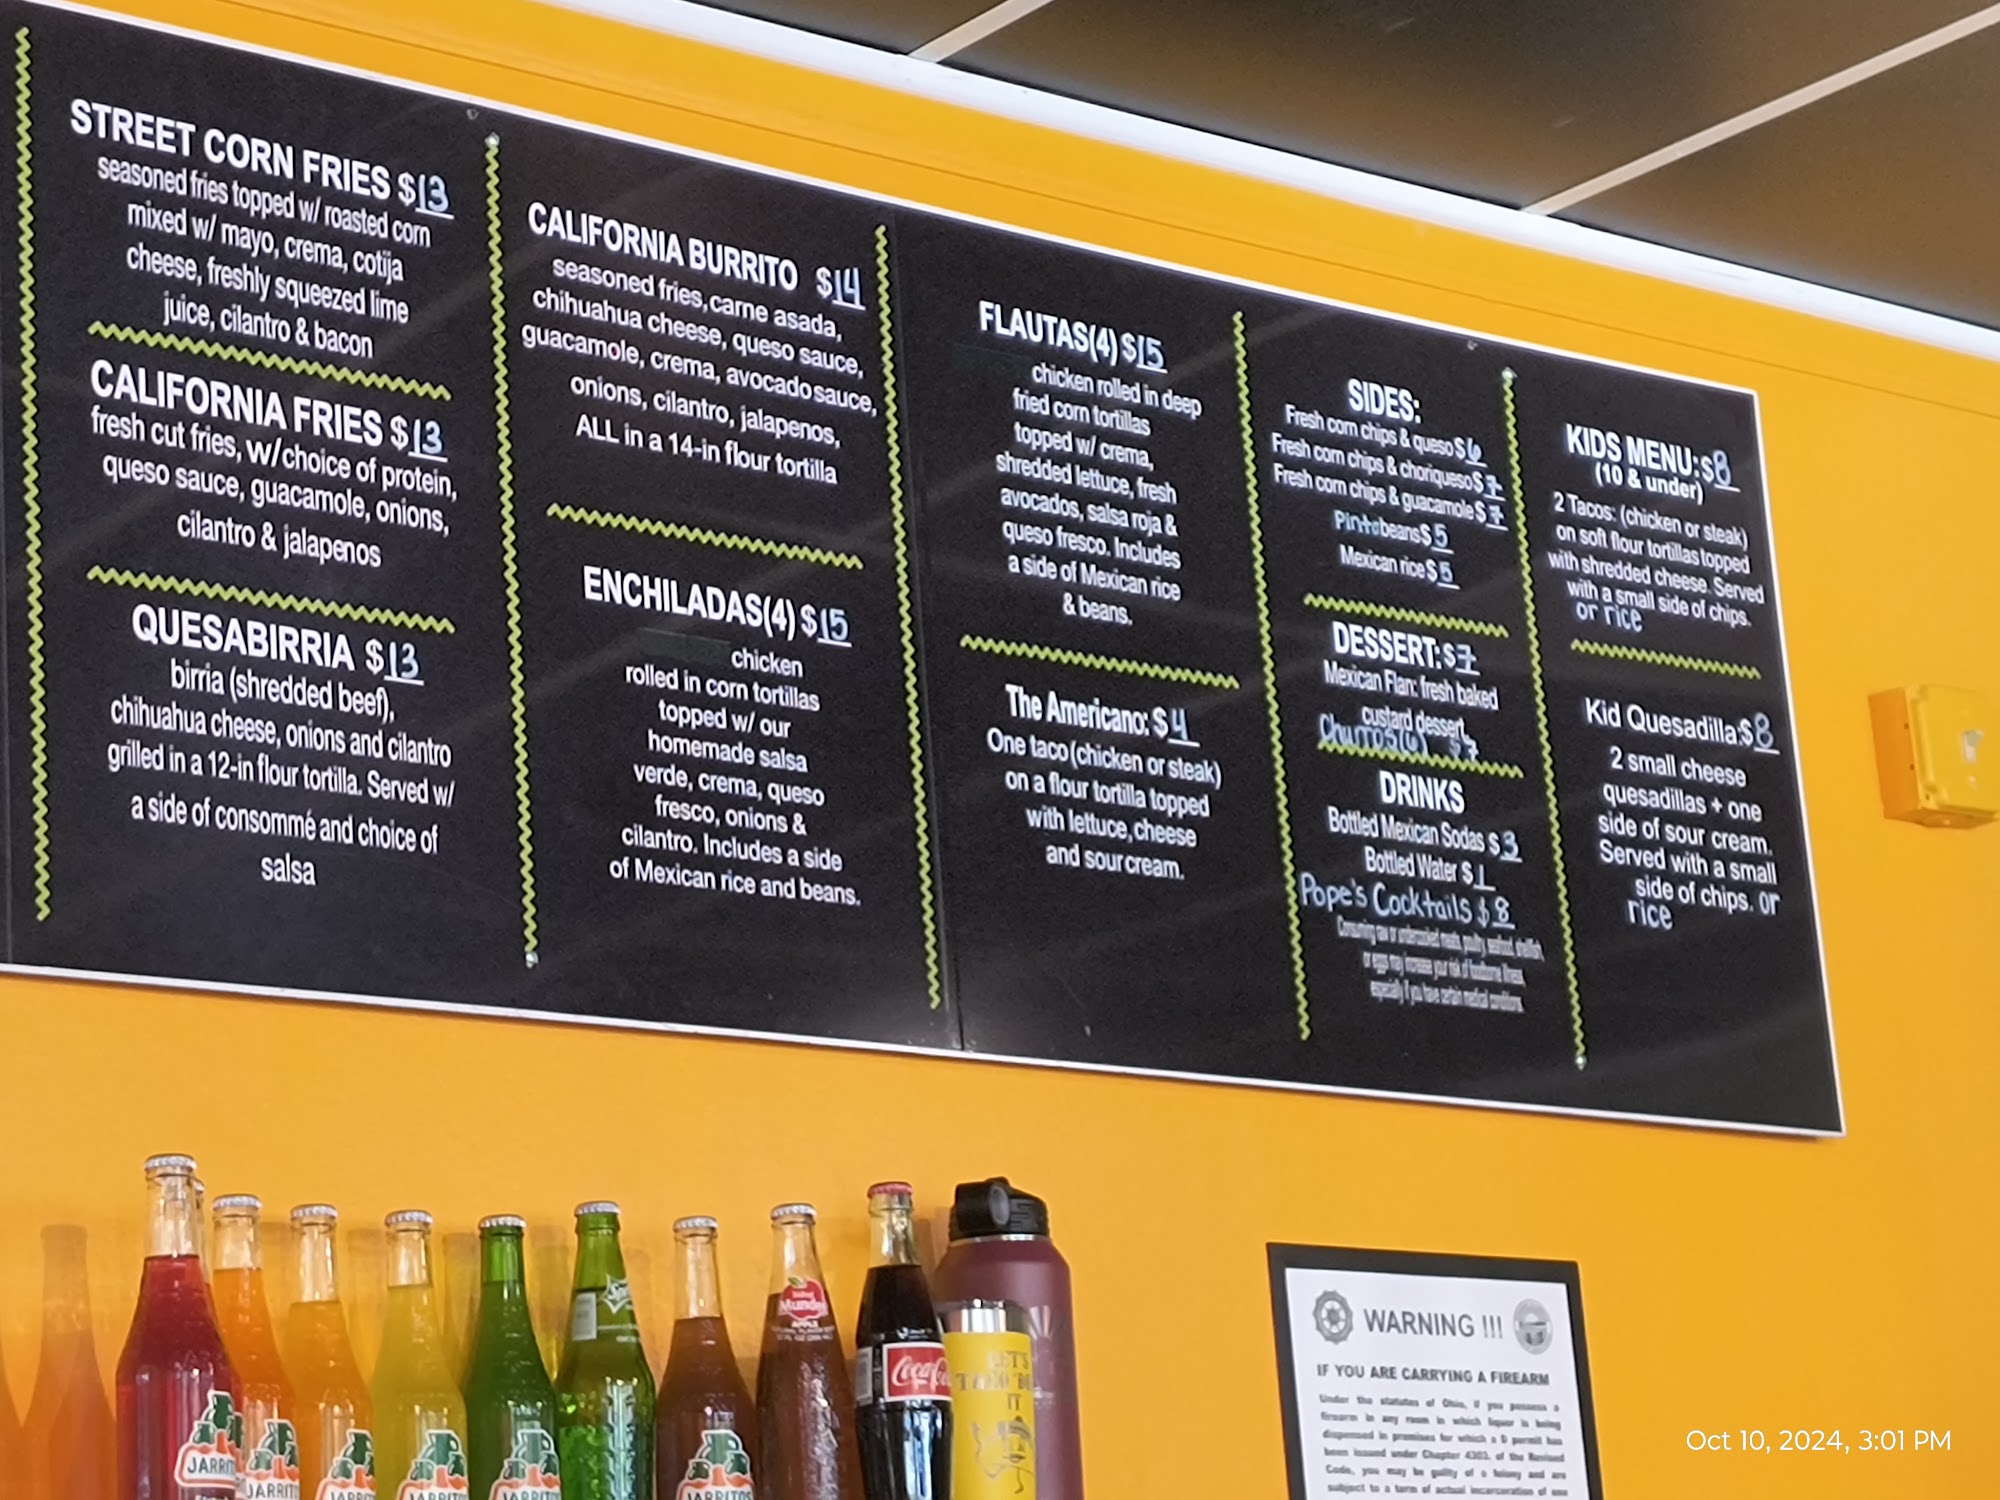 STREET CORN FRIES $13
seasoned fries topped w/ roasted corn
mixed w/ mayo, crema, cotija
cheese, freshly squeezed lime
juice, cilantro & bacon
CALIFORNIA FRIES $13
fresh cut fries, w/choice of protein,
queso sauce, guacamole, onions,
cilantro & jalapenos
QUESABIRRIA $13
birria (shredded beef),
chihuahua cheese, onions and cilantro
grilled in a 12-in flour tortilla. Served w/
a side of consommé and choice of
salsa
CALIFORNIA BURRITO $14
seasoned fries, carne asada,
chihuahua cheese, queso sauce,
guacamole, crema, avocado sauce,
onions, cilantro, jalapenos,
ALL in a 14-in flour tortilla
ENCHILADAS(4) $15
chicken
rolled in corn tortillas
topped w/ our
homemade salsa
verde, crema, queso
fresco, onions &
cilantro. Includes a side
of Mexican rice and beans.
FLAUTAS(4) $15
chicken rolled in deep
fried corn tortillas
topped w/ crema,
shredded lettuce, fresh
avocados, salsa roja &
queso fresco. Includes
a side of Mexican rice
& beans.
The Americano: $4
One taco (chicken or steak)
on a flour tortilla topped
with lettuce, cheese
and sour cream.
SIDES:
Fresh corn chips & queso $6
Fresh corn chips & choriqueso $7
Fresh corn chips & guacamole $7
Pinto beans $5
Mexican rice $5
DESSERT: $7
Mexican Flan: fresh baked
custard dessert.
Churros(6) $7
DRINKS
Bottled Mexican Sodas $3
Bottled Water $1
Pope's Cocktails $8
Consuming raw or undercooked meats, poultry, seafood, shellfish,
or eggs may increase your risk of foodborne illness,
especially if you have certain medical conditions.
KIDS MENU: $8
(10 & under)
2 Tacos: (chicken or steak)
on soft flour tortillas topped
with shredded cheese. Served
with a small side of chips.
or rice
Kid Quesadilla: $8
2 small cheese
quesadillas + one
side of sour cream.
Served with a small
side of chips. or
rice
Sprite
Mundet
APPLE
Coca-Cola
LET'S
TACO 'BOUT
IT
JARRITOS
JARRITOS
JARRITOS
JARRITOS
JARRITOS
JARRITOS
WARNING !!!
IF YOU ARE CARRYING A FIREARM
Under the statutes of Ohio, if you possess a
firearm in any room in which liquor is being
dispensed in premises for which a D permit has
been issued under Chapter 4303. of the Revised
Code, you may be guilty of a felony and are
subject to a term of actual incarceration of one
Oct 10, 2024, 3:01 PM